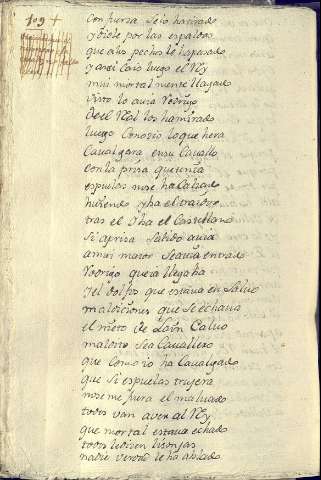 109 +
Con fuerza se lo ha tirado
y diole por las espaldas
que a los pechos le ha pasado
y assi caio luego el Rey
mui mortal mente llagado
visto lo avia Rodrigo
del Real los ha mirado
luego Conosio lo que hera
Cavalgara en su Cavallo
con la prisa que tenia
espuelas no se ha Calzado
huiendo iba el traidor
tras el iba el Castellano
si aprisa salido avia
a maior se avia entrado
Rodrigo que ia llegaba
y el Dolfos que estava en salvo
maldiciones que se echava
el nieto de Laín Calvo
maldito sea Cavallero
que como io ha Cavalgado
que si espuelas trujera
no se me fuera el malvado
todos van a ver al Rey
que mortal estava echado
todos le dicen lisonjas
nadie verdad le ha ablado